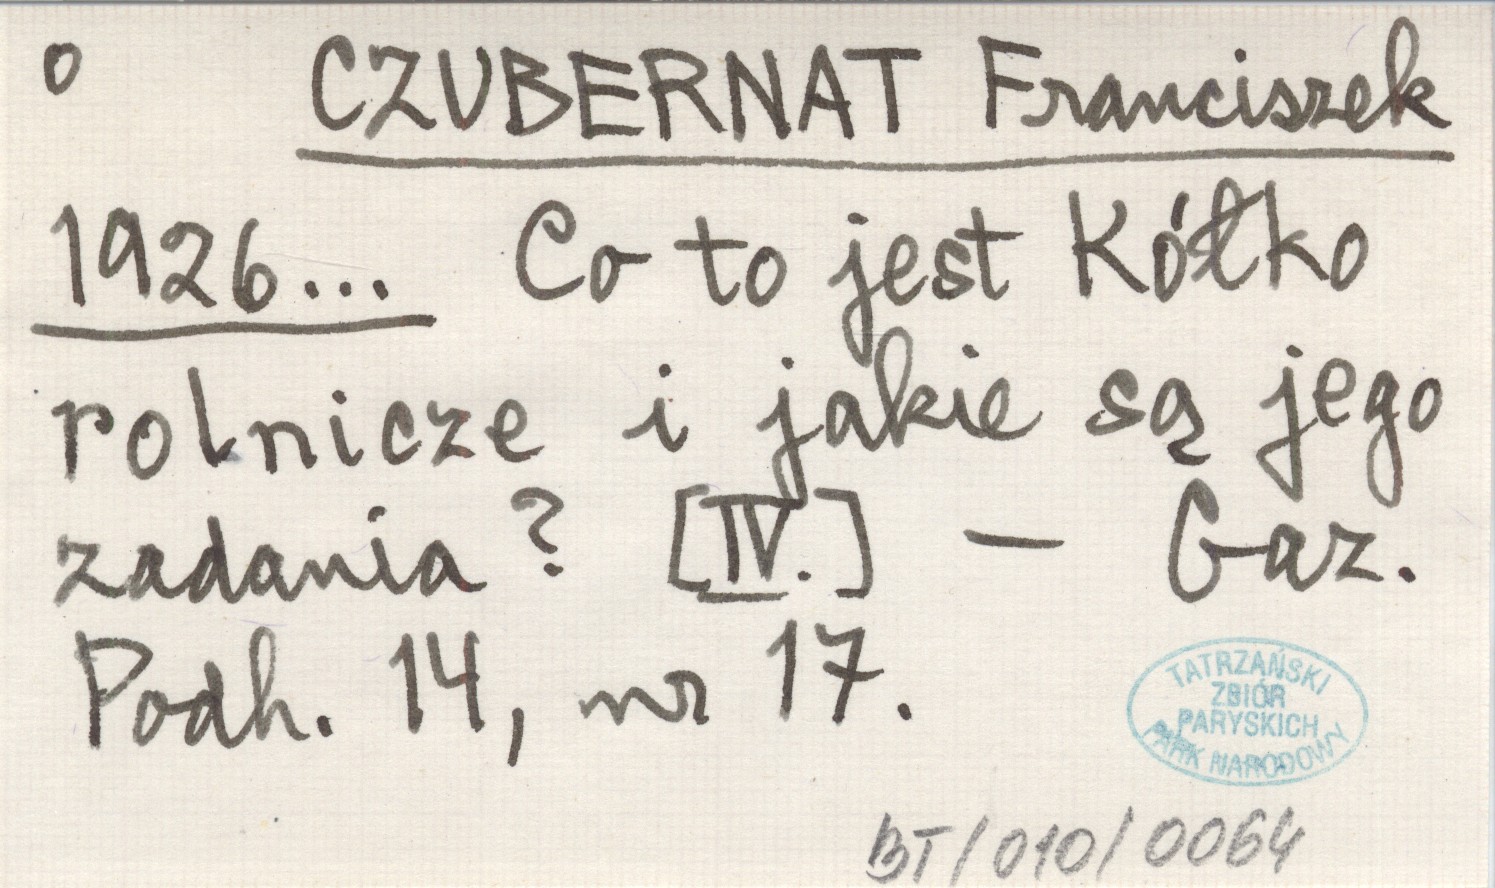 o CZUBERNAT Franciszek
1926... Co to jest Kółko
rolnicze i jakie są jego
zadania? [IV.] — Gaz.
Podh. 14, nr 17.
TATRZAŃSKI
ZBIÓR
PARYSKICH
PARK NARODOWY
BT/010/0064